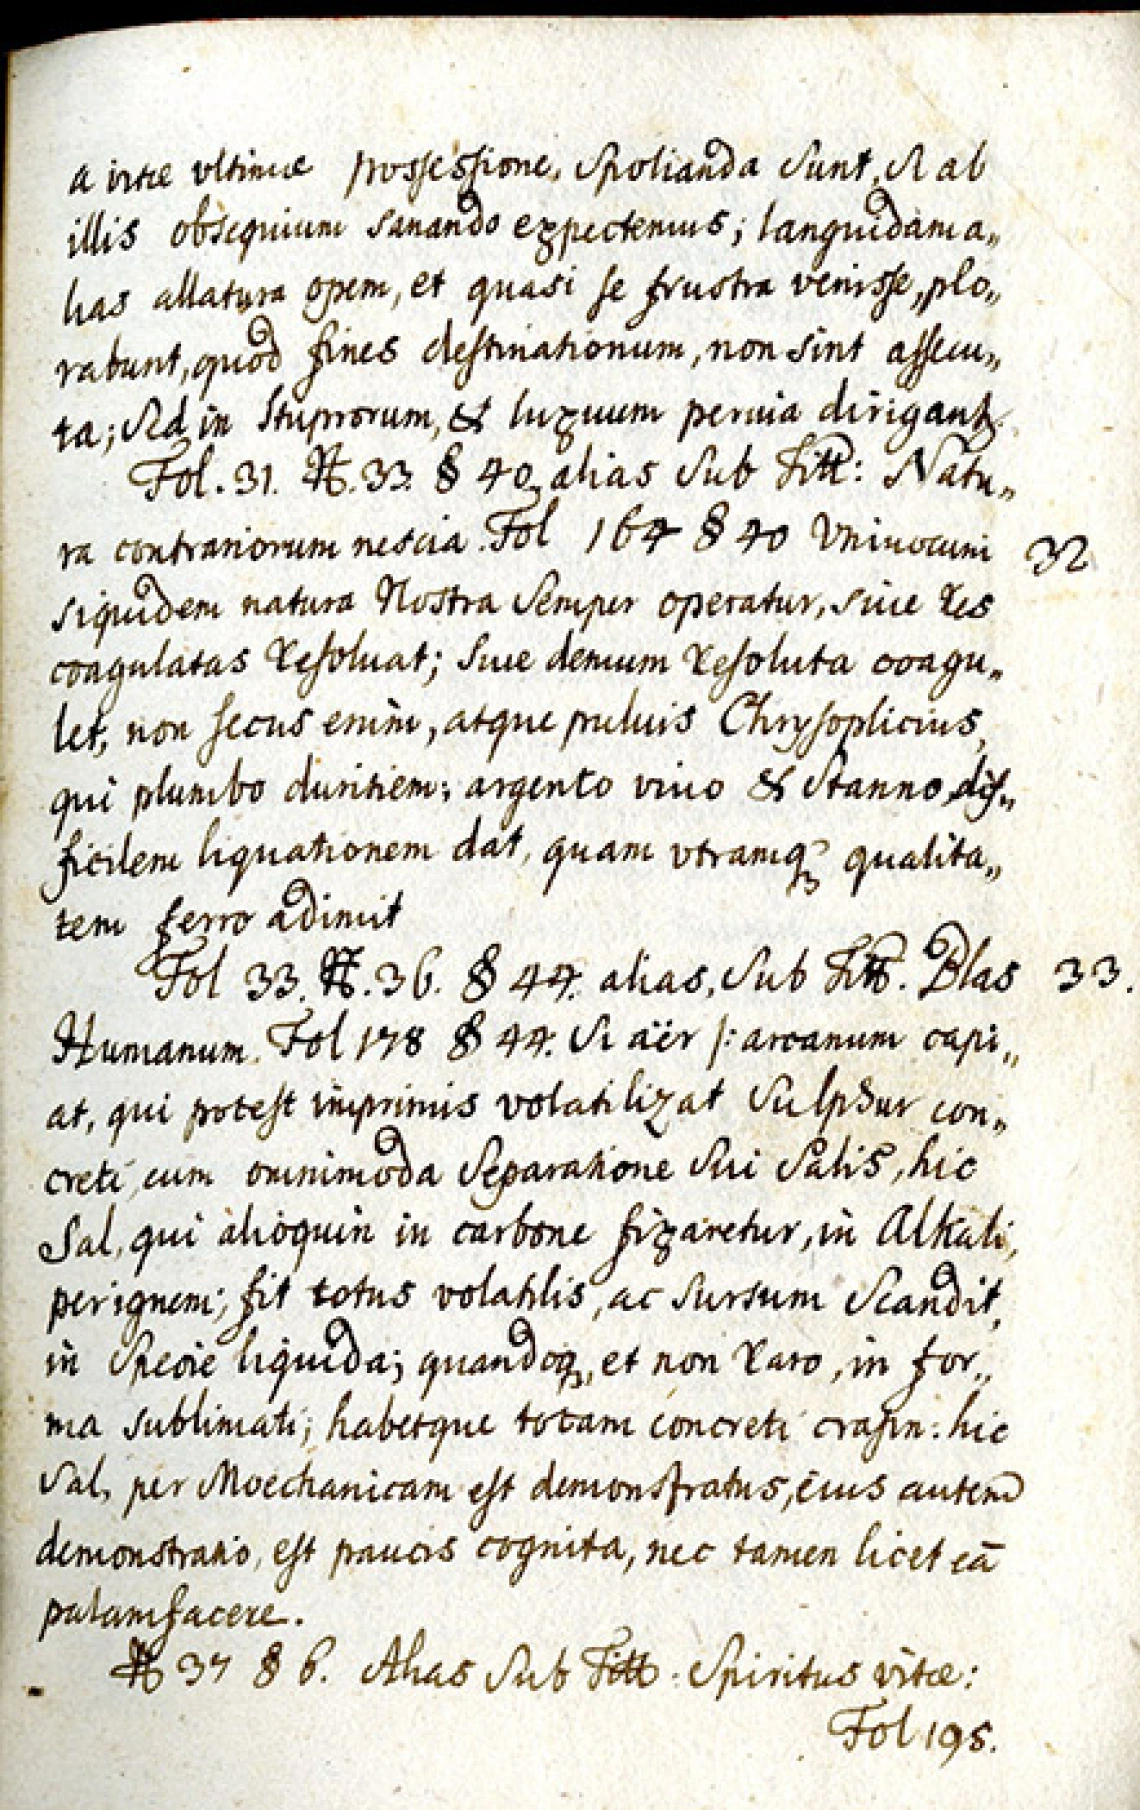 a vitæ vltimæ possessione, Spolianda Sunt, Si ab
illis obsequium sanando expectemus; languidam a„
lias allatura opem, et quasi se frustra venisse, plo„
rabunt, quod fines destinationum, non sint assecu„
ta; Sed in Stuprorum, & luxuum peruia dirigantr.
Fol. 31. N. 33. § 40. alias Sub Titt: Natu„
ra contrariorum nescia. Fol 164 § 40 Vniuocum 32
siquidem natura Nostra Semper operatur, siue Res
coagulatas Resoluat; Siue demum Resoluta coagu„
let, non secus enim, atque puluis Chrysoplicius,
qui plumbo duritiem; argento viuo & Stanno dif„
ficilem liquationem dat, quam vtramq₃ qualita„
tem ferro adimit
Fol 33. N. 36. § 44. alias, Sub Titt. Blas 33.
Humanum. Fol 178 § 44. Si aër |: arcanum capi„
at, qui potest inprimis volatilizat Sulphur con„
creti, cum omnimoda Separatione Sui Salis, hic
Sal, qui alioquin in carbone fixaretur, in Alkali,
per ignem; fit totus volatilis, ac Sursum Scandit,
in Specie liquida; quandoq₃, et non Raro, in for„
ma sublimati; habetque totam concreti crasin: hic
Sal, per Moechanicam est demonstratus, eius autem
demonstratio, est paucis cognita, nec tamen licet eā
palamfacere.
N 37 § 6. Alias Sub Titt: Spiritus vitæ:
Fol 195.